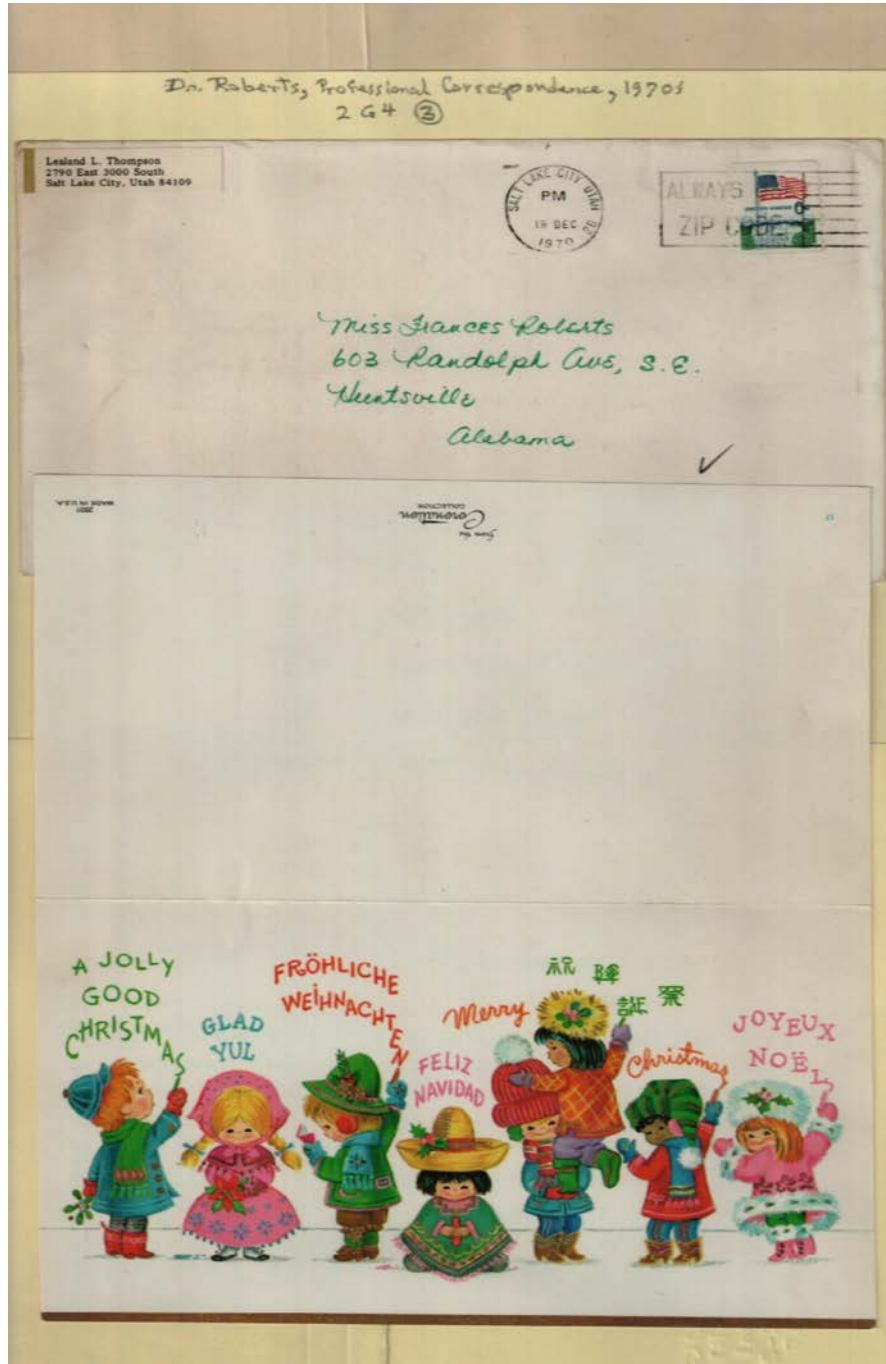 Dr. Roberts, Professional Correspondence, 1970s
2 G 4 ③
Lealand L. Thompson
2790 East 3000 South
Salt Lake City, Utah 84109
SALT LAKE CITY UTAH
PM
DEC
1970
ALWAYS
ZIP CODE
Miss Frances Roberts
603 Randolph Ave, S.E.
Huntsville
Alabama
MADE IN U.S.A.
from the
Coronation
COLLECTION
A JOLLY
GOOD
CHRISTMAS
GLAD
YUL
FRÖHLICHE
WEIHNACHTEN
FELIZ
NAVIDAD
Merry
祝
誕
Christmas
JOYEUX
NOËL